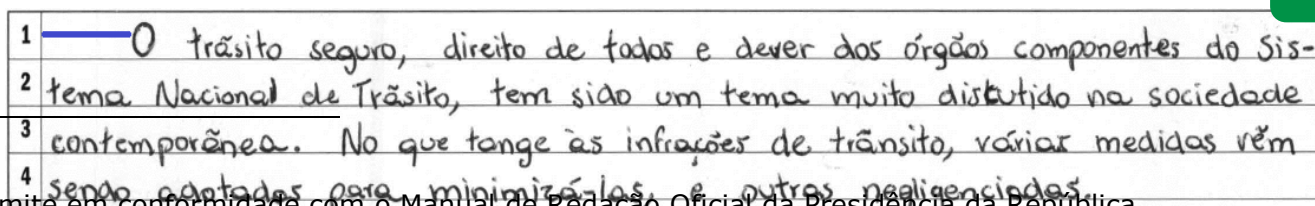 1 O trãsito seguro, direito de todos e dever dos órgãos componentes do Sis-
2 tema Nacional de Trãsito, tem sido um tema muito discutido na sociedade
3 contemporãnea. No que tange às infrações de trãnsito, várias medidas vêm
4 sendo adotadas para minimizá-las, e outras negligenciadas.
mite em conformidade com o Manual de Redação Oficial da Presidência da República